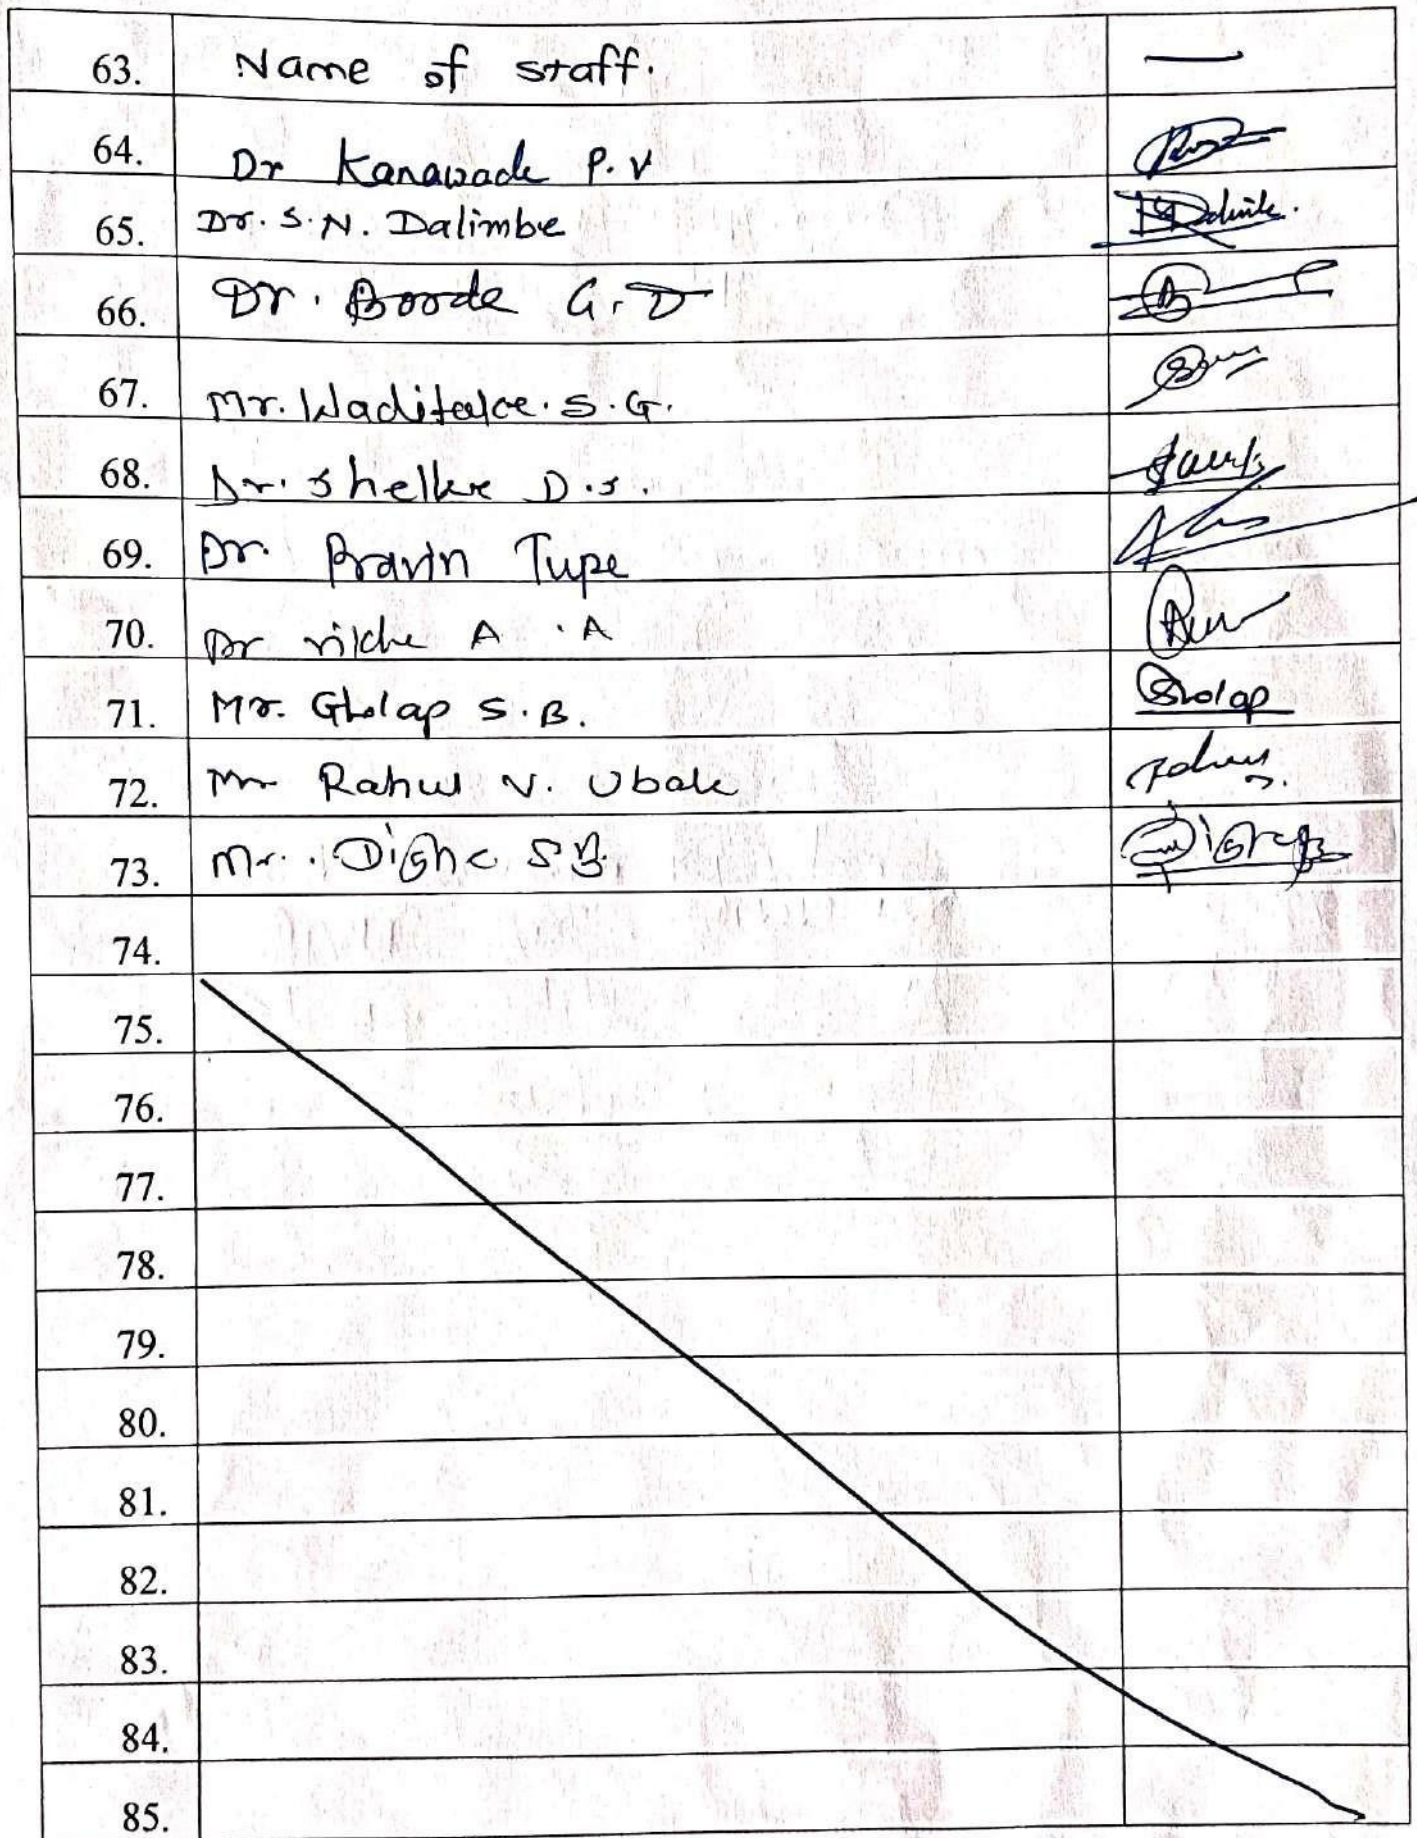 63. Name of staff. —
64. Dr Kanawade P.V
65. Dr. S.N. Dalimbe
66. Dr. Boode G.D
67. Mr. Waditake S.G.
68. Dr. Shelke D.S.
69. Dr. Pravin Tupe
70. Dr A.A
71. Mr. Gholap S.B. Gholap
72. Mr Rahul V. Ubale
73. Mr. Dighe S.B.
74.
75.
76.
77.
78.
79.
80.
81.
82.
83.
84.
85.